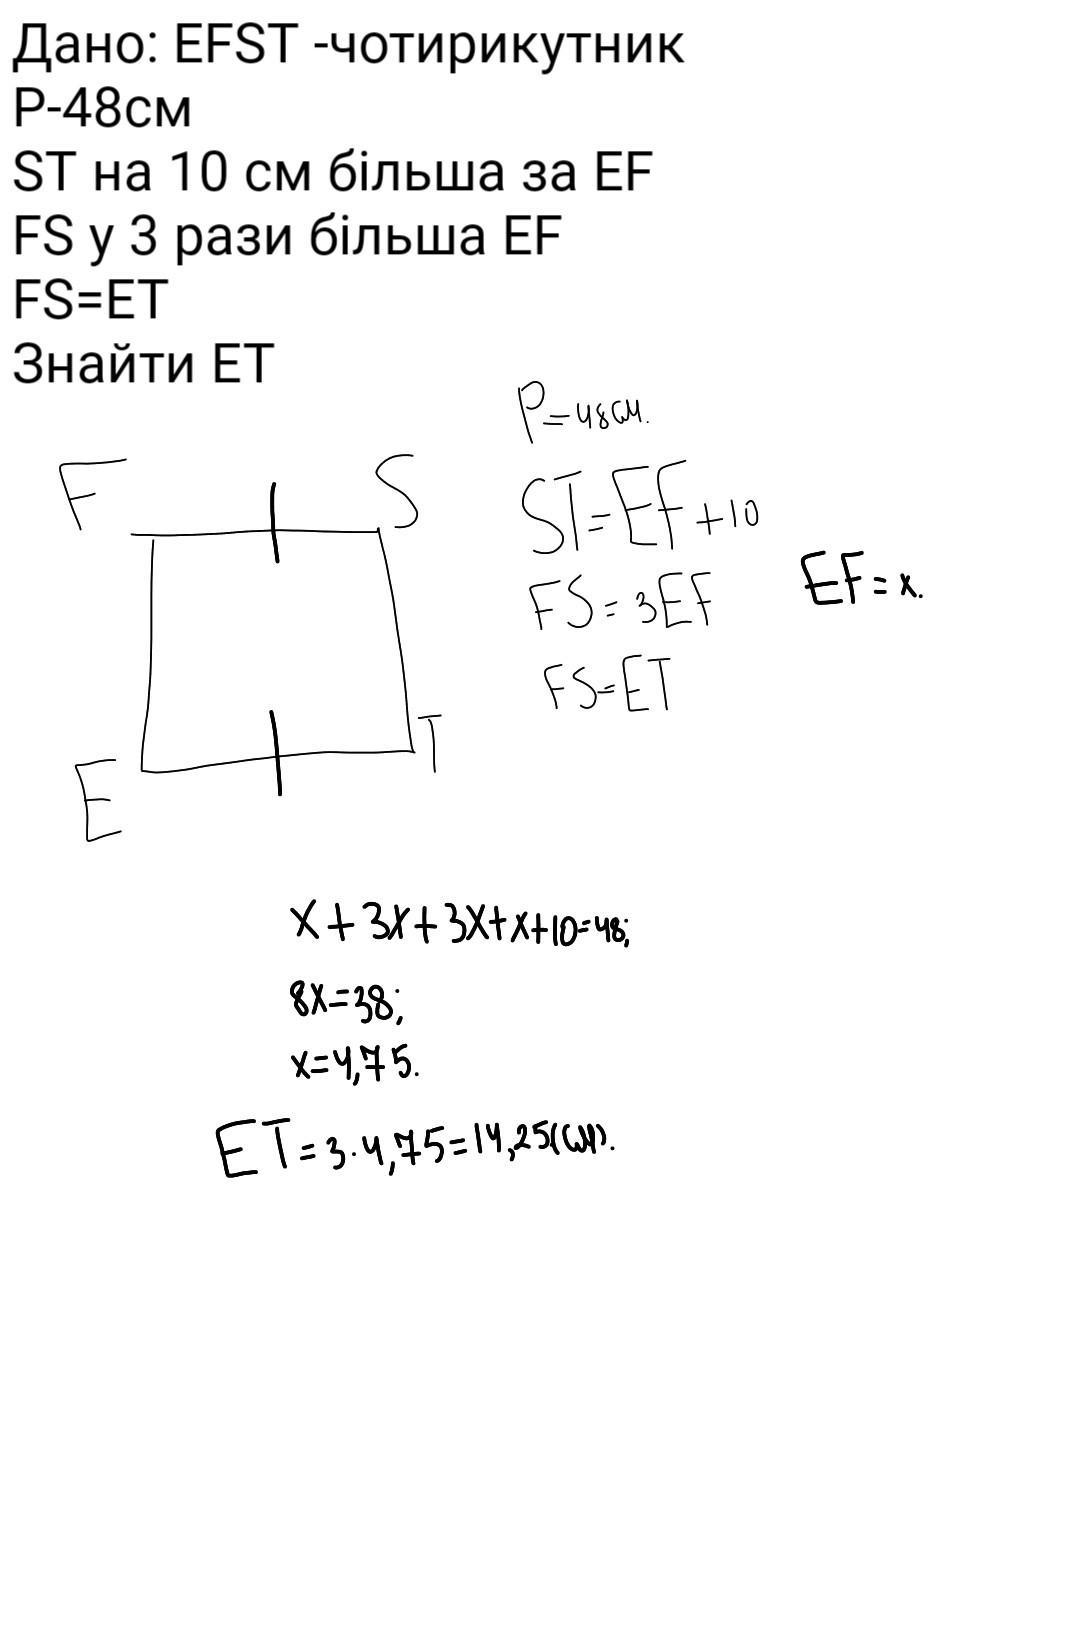 Дано: EFST -чотирикутник
P-48см
ST на 10 см більша за EF
FS у 3 рази більша EF
FS=ET
Знайти ET
P=48см.
F S
ST=EF+10
FS=3EF EF=x.
FS=ET
E T
x+3x+3x+x+10=48;
8x=38;
x=4,75.
ET=3·4,75=14,25(см).